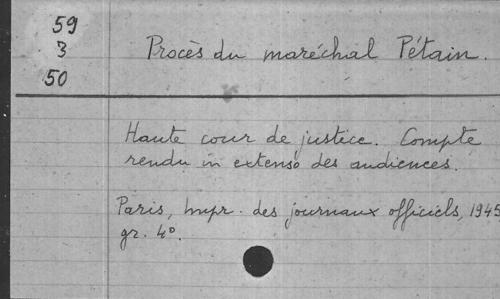 59
3
50
Procès du maréchal Pétain.
Haute cour de justice. Compte
rendu in extenso des audiences.
Paris, Impr. des journaux officiels, 1945
gr. 4°.